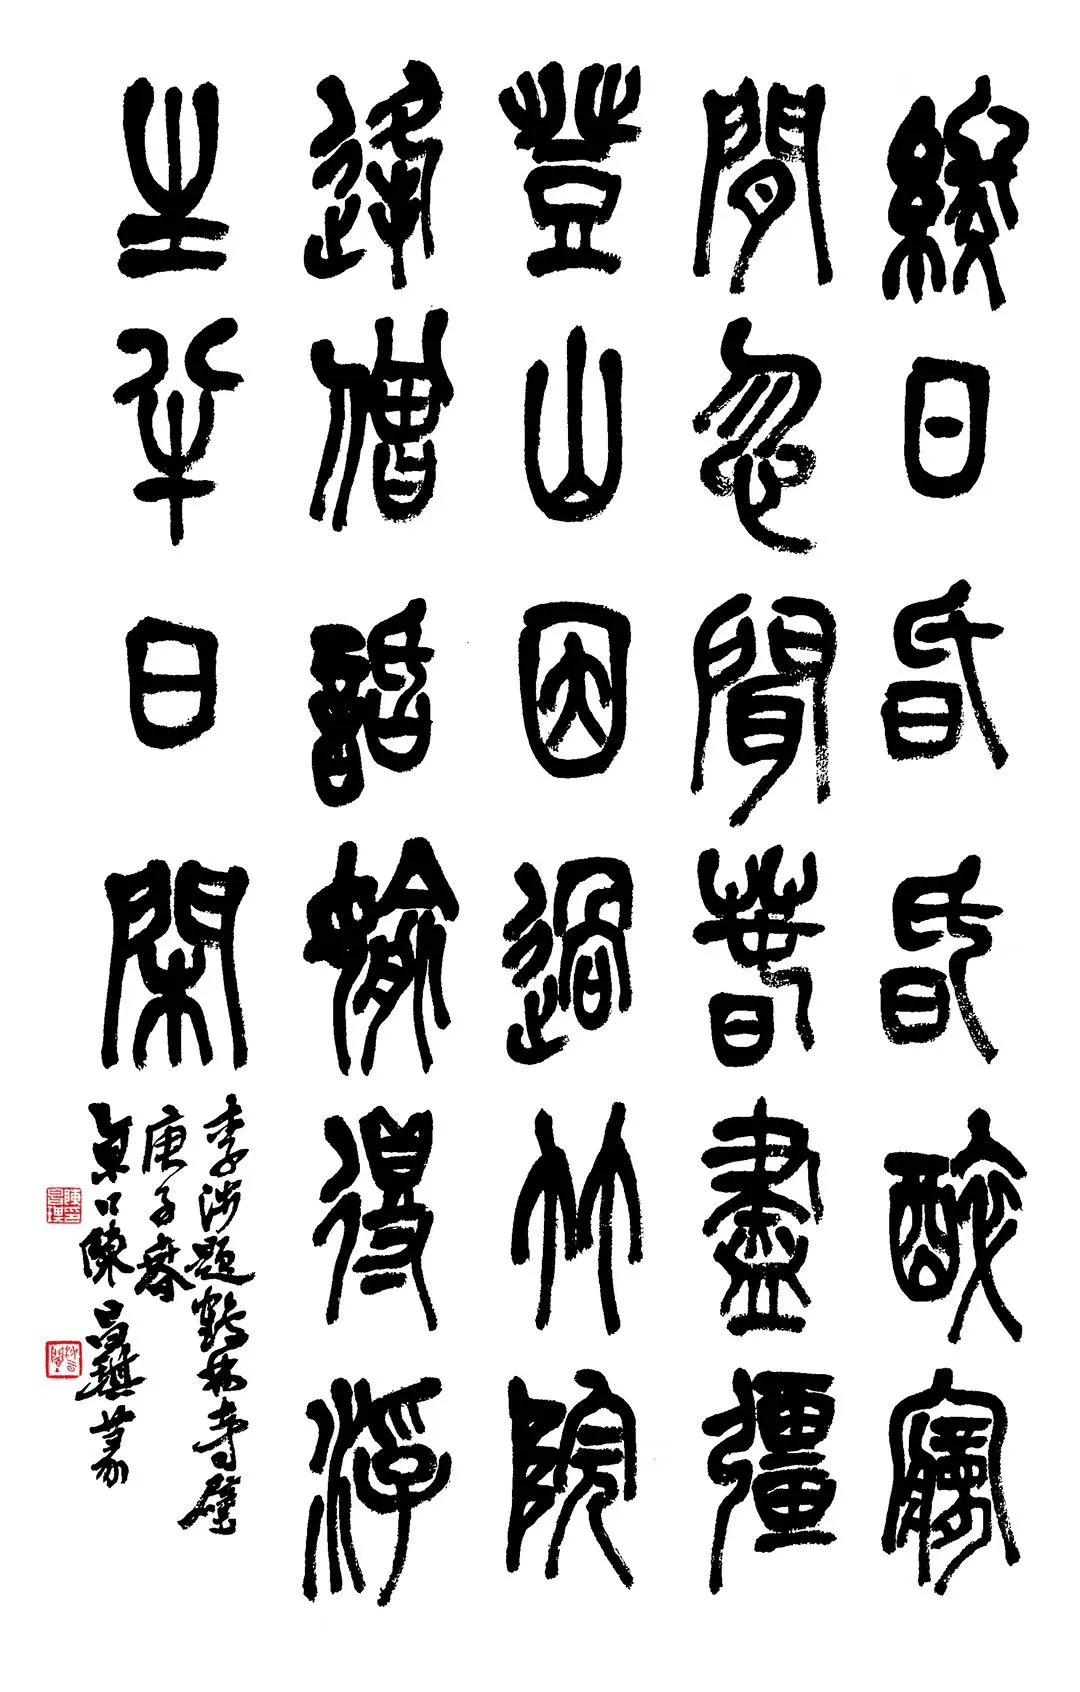 終日昏昏醉夢
間忽聞春盡彊
登山因過竹院
逢僧話媮得浮
生半日閑
李涉題鶴林寺壁
庚子春
京口陳昌篆